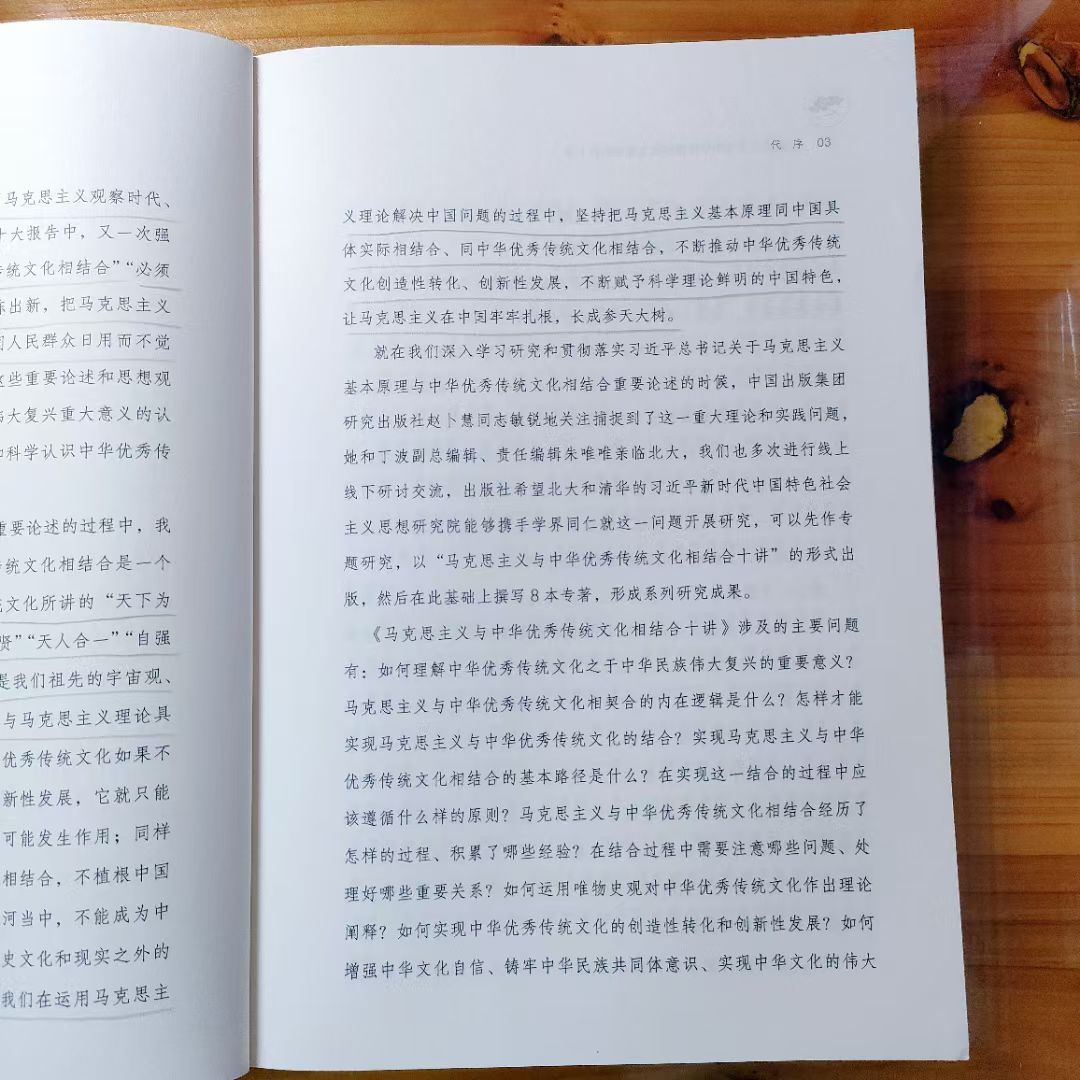 马克思主义观察时代、
十大报告中，又一次强
统文化相结合”“必须
陈出新，把马克思主义
人民群众日用而不觉
这些重要论述和思想观
伟大复兴重大意义的认
和科学认识中华优秀传
重要论述的过程中，我
传统文化相结合是一个
文化所讲的“天下为
贤”“天人合一”“自强
是我们祖先的宇宙观、
与马克思主义理论具
优秀传统文化如果不
新性发展，它就只能
可能发生作用；同样
相结合，不植根中国
河当中，不能成为中
史文化和现实之外的
我们在运用马克思主
代序 03
义理论解决中国问题的过程中，坚持把马克思主义基本原理同中国具
体实际相结合、同中华优秀传统文化相结合，不断推动中华优秀传统
文化创造性转化、创新性发展，不断赋予科学理论鲜明的中国特色，
让马克思主义在中国牢牢扎根，长成参天大树。
就在我们深入学习研究和贯彻落实习近平总书记关于马克思主义
基本原理与中华优秀传统文化相结合重要论述的时候，中国出版集团
研究出版社赵卜慧同志敏锐地关注捕捉到了这一重大理论和实践问题，
她和丁波副总编辑、责任编辑朱唯唯亲临北大，我们也多次进行线上
线下研讨交流，出版社希望北大和清华的习近平新时代中国特色社会
主义思想研究院能够携手学界同仁就这一问题开展研究，可以先作专
题研究，以“马克思主义与中华优秀传统文化相结合十讲”的形式出
版，然后在此基础上撰写8本专著，形成系列研究成果。
《马克思主义与中华优秀传统文化相结合十讲》涉及的主要问题
有：如何理解中华优秀传统文化之于中华民族伟大复兴的重要意义？
马克思主义与中华优秀传统文化相契合的内在逻辑是什么？怎样才能
实现马克思主义与中华优秀传统文化的结合？实现马克思主义与中华
优秀传统文化相结合的基本路径是什么？在实现这一结合的过程中应
该遵循什么样的原则？马克思主义与中华优秀传统文化相结合经历了
怎样的过程、积累了哪些经验？在结合过程中需要注意哪些问题、处
理好哪些重要关系？如何运用唯物史观对中华优秀传统文化作出理论
阐释？如何实现中华优秀传统文化的创造性转化和创新性发展？如何
增强中华文化自信、铸牢中华民族共同体意识、实现中华文化的伟大